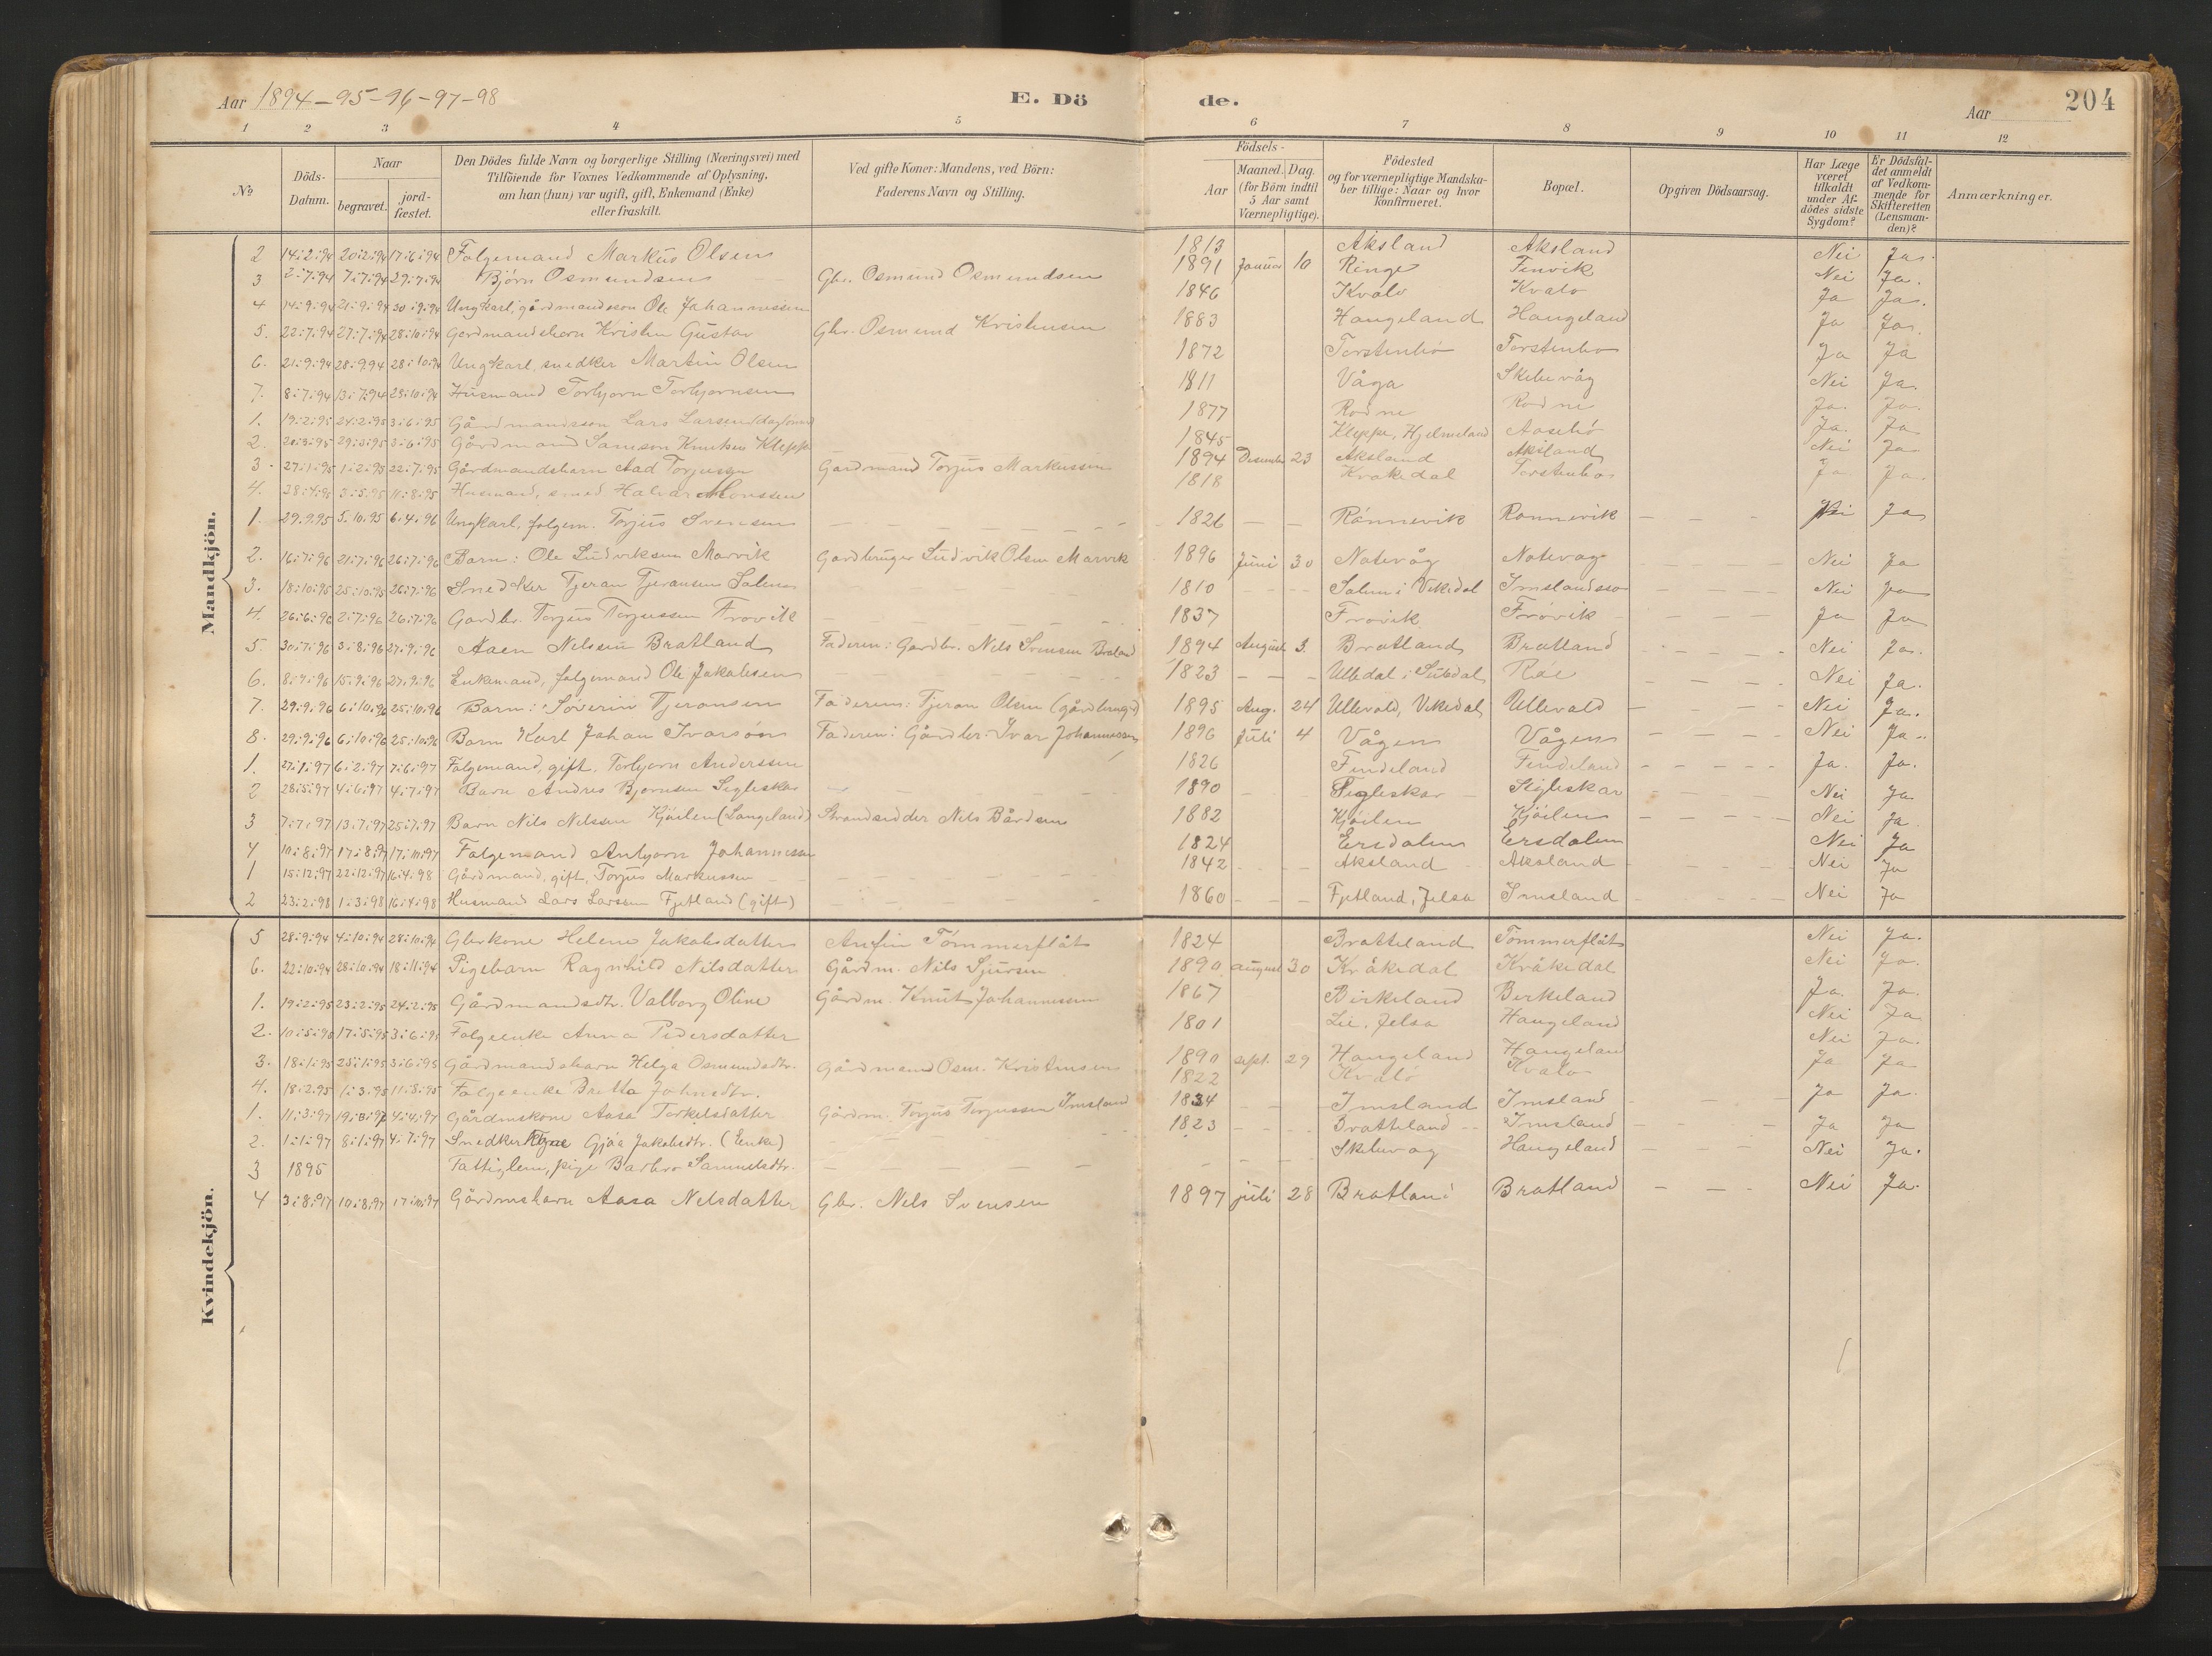 Aar 1894-95-96-97-98 E. Dö de. Aar 204
1 2 3 4 5 6 7 8 9 10 11 12
No Döds-Datum. Naar begravet. jord-fæstet. Den Dödes fulde Navn og borgerlige Stilling (Næringsvei) med Tilföiende for Voxnes Vedkommende af Oplysning, om han (hun) var ugift, gift, Enkemand (Enke) eller fraskilt. Ved gifte Koner: Mandens, ved Börn: Faderens Navn og Stilling. Födsels- Aar Maaned. Dag. (for Börn indtil 5 Aar samt Værnepligtige). Födested og for værnepligtige Mandskaber tillige: Naar og hvor Konfirmeret. Bopæl. Opgiven Dödsaarsag. Har Læge været tilkaldt under Afdödes sidste Sygdom? Er Dödsfaldet anmeldt af Vedkommende for Skifteretten (Lensmanden)? Anmærkninger.
Mandkjön.
2 14:2:94 20:2:94 17:6:94 Folgemand Markus Olsen 1813 Aksland Aksland Nei Ja.
3 2:7:94 7:7:94 29:7:94 Bjórn Osmundsen Gbr. Osmund Osmundsen 1891 Januar 10 Ringe Finvik Nei Ja.
4 14:9:94 21:9:94 30:9:94 Ungkarl, gårdmandsson Ole Johannessen 1846 Kvalo Kvalo Ja Ja.
5. 22:7:94 27:7:94 28:10:94 Gardmandsbarn Kristen Gustav Gbr. Osmund Kristensen 1883 Haugeland Haugeland Ja Ja.
6. 21:9:94 28:9:94 28:10:94 Ungkarl, snedker Martin Olsen 1872 Torstenbo Torstenbo Ja Ja
7. 8:7:94 13:7:94 28:10:94 Husmand Torbjorn Torbjornsen 1811 Våga Skeluvåg Nei Ja.
1. 19:2:95 24:2:95 3:6:95 Gårdmandsson Lars Larsen 1877 Rodne Rodne Ja. Ja.
2. 20:3:95 29:3:95 3:6:95 Gårdmand Samson Knutsen Kleppe 1845 Kleppe, Hjelmeland Aasebö Ja. Ja
3. 27:1:95 1:2:95 22:7:95 Gårdmandsbarn Aad Torjussen Gårdmand Torjus Markussen 1894 Desember 23 Aksland Aksland Nei Ja
4. 28:4:95 3:5:95 11:8:95 Husmand, smed Halvar Monssen 1818 Krakedal Torstenbo Ja Ja.
1. 29.9.95 5.10.95 6:4:96 Ungkarl, folgem. Torjus Svensen 1826 Rónnevik Ronnevik Nei Ja
2. 16:7:96 21:7:96 26:7:96 Barn: Ole Ludviksen Marvik Gardbruger Ludvik Olsen Marvik 1896 Juni 30 Notevåg Notevag Nei Ja
3. 18:10:95 25:10:95 26:7:96 Snedker Tjeran Tjeransen Salen 1810 Salen i Vikedal Imslandssjo Nei Ja
4. 26:6:96 2:7:96 26:7:96 Gardbr. Torjus Torjussen Frovik 1837 Frövik Frövik Ja Ja
5. 30:7:96 3:8:96 27:9:96 Aaen Nilssen Bratland Faderen: Gardbr. Nils Svensen Bratland 1894 August 3. Bratland Bratland Nei Ja.
6. 8:9:96 15:9:96 27:9:96 Enkemand, folgemand Ole Jakobsen 1823 Ulledal i Suledal Nei Ja.
7. 29:9:96 6:10:96 25:10:96 Barn: Söverin Tjeransen Faderen: Tjeran Olsen (gårdbruger) 1895 Aug. 24 Ullevold, Vikedal Ullevold Nei Ja.
8. 29:9:96 6:10:96 25:10:96 Barn Karl Johan Ivarsón Faderen: Gårdbr. Ivar Johannessen 1896 Juli 4 Vågen Vågen Nei Ja.
1. 27:1:97 6:2:97 7:6:97 Folgemand, gift, Torbjorn Anderssen 1826 Findeland Findeland Ja. Ja.
2 28:5:97 4:6:97 4:7:97 Barn Andres Bjornsen Sigleskar 1890 Sigleskar Sigleskar Nei Ja
3 7:7:97 13:7:97 25:7:97 Barn Nils Nelssen Kjöilen (Langeland) Strandsidder Nels Bårdsen 1882 Kjöilen Kjöilen Nei Ja
4 10:8:97 17:8:97 17:10:97 Folgemand Anbjorn Johannessen 1824 Ersdalen Ersdalen Nei Ja
1 15:12:97 22:12:97 16:4:98 Gårdmand, gift, Torjus Markussen 1842 Aksland Aksland Nei Ja
2 23:2:98 1:3:98 16:4:98 Husmand Lars Larssen Fjetland (gift) 1860 Fjetland, Jelsa Imsland Nei Ja
Kvindekjön.
5 28:9:94 4:10:94 28:10:94 Gbrkone Helene Jakobsdatter Anfin Tömmerflåt 1824 Bratteland Tömmerflåt Nei Ja.
6. 22:10:94 28:10:94 18:11:94 Pigebarn Ragnhild Nilsdatter Gårdm. Nils Sjursen 1890 august 30 Kråkedal Kråkedal Nei Ja.
1. 19:2:95 23:2:95 24:2:95 Gårdmandsdtr. Valborg Oline Gårdm. Knut Johannessen 1867 Birkeland Birkeland Ja. Ja.
2. 10:5:95 17:5:95 3:6:95 Folgeenke Anna Pedersdatter 1801 Lie, Jelsa Haugeland Nei Ja
3. 18:1:95 25:1:95 3:6:95 Gårdmandsbarn Helga Osmundsdtr. Gårdmand Osm. Kristensen 1890 sept. 29 Haugeland Haugeland Nei Ja.
4. 18:2:95 1:3:95 11:8:95 Folgeenke Johnsdtr. 1822 Kvaló Kvalo Ja Ja
1. 11:3:97 19:3:97 4:4:97 Gårdmskone Aasa Torkelsdatter Gårdm. Torjus Torjussen Imsland 1834 Imsland Imsland Ja Ja.
2. 1:1:97 8:1:97 4:7:97 Snedker Gjöa Jakobsdtr. (Enke) 1823 Bratteland Imsland Ja Ja
3 1895 Fattiglem, pige Barbro Samuelsdtr. Skeluvag Haugeland Nei Ja.
4 3:8:97 10:8:97 17:10:97 Gårdmsbarn Aasa Nelsdatter Gbr. Nels Svensen 1897 juli 28 Bratland Bratland Nei Ja.